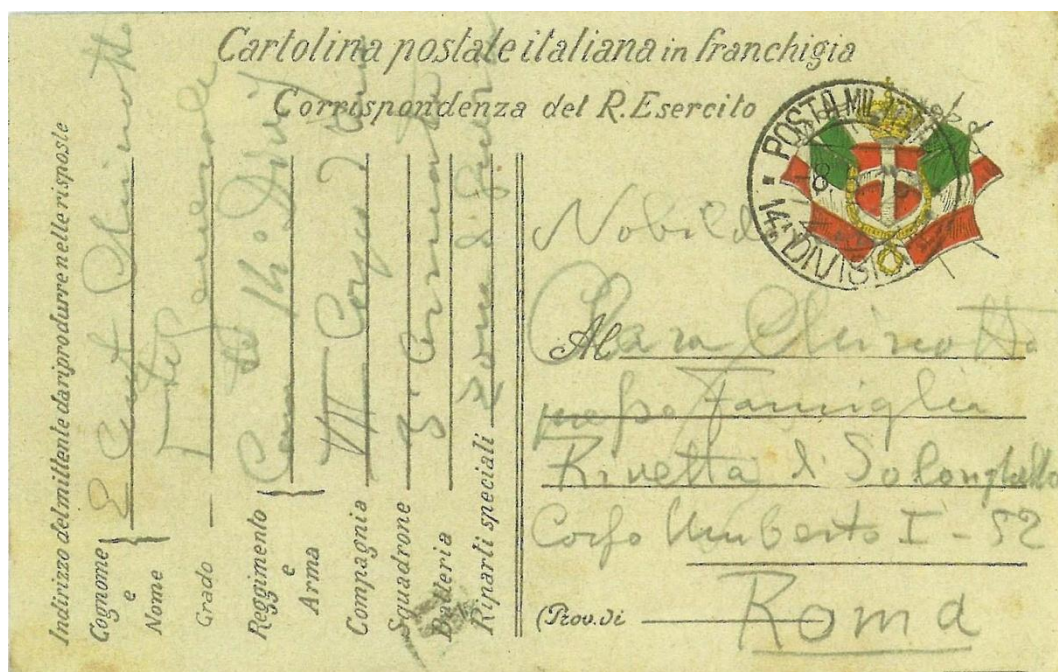 Cartolina postale italiana in franchigia
Corrispondenza del R. Esercito
POSTA MILITARE
14ª DIVISIONE
8
Indirizzo del mittente da riprodurre nelle risposte
Cognome e Nome
Grado
Ten. Generale
Reggimento e Arma
Compagnia
VII Corpo
Squadrone
3ª Armata
Batteria
Riparti speciali
Zona di Guerra
Nobile
Al
Clara
presso Famiglia
Rivetta di Solonghello
Corso Umberto I - 52
(Prov. di
Roma